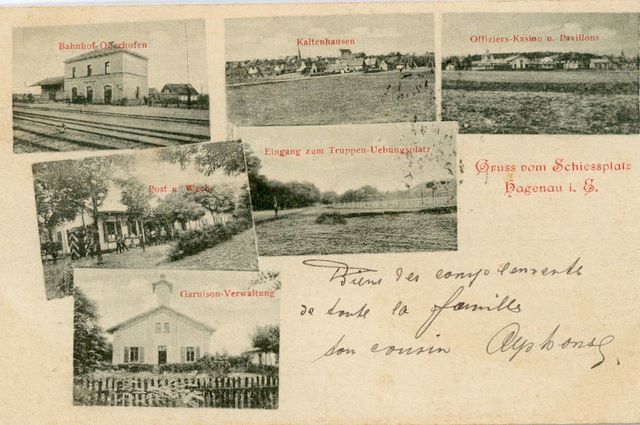 Bahnhof-Oberhofen
Kaltenhausen
Offiziers-Kasino u. Pavillons
Eingang zum Truppen-Uebungsplatz
Post u. Wache
Gruss vom Schiessplatz
Hagenau i. E.
Garnison-Verwaltung
Bien des complements
de toute la famille
ton cousin Alphonse